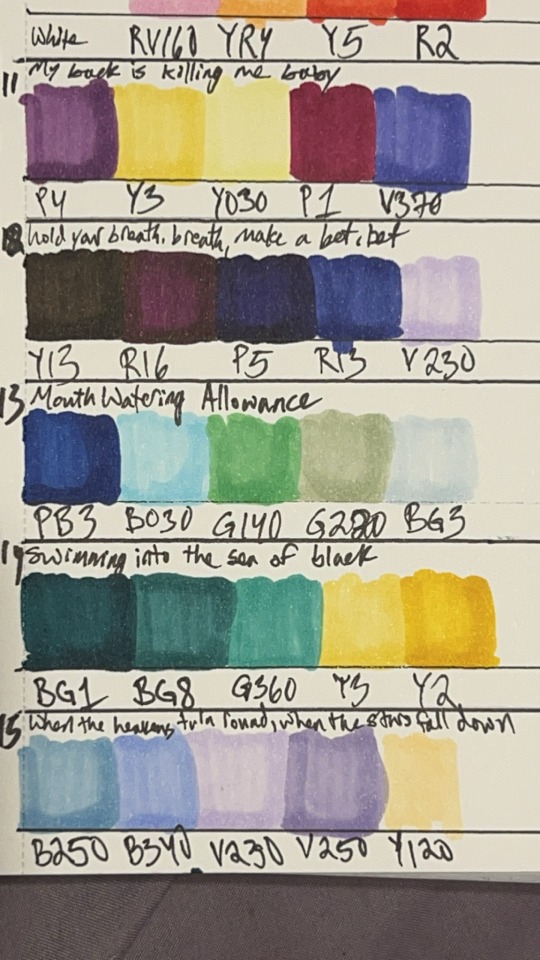 White RV160 YR4 Y5 R2
11 My back is killing me baby
P4 Y3 Y030 P1 V370
12 hold your breath, breath, make a bet, bet
Y13 R16 P5 R13 V230
13 Mouth Watering Allowance
PB3 B030 G140 G280 BG3
14 Swimming into the sea of black
BG1 BG8 G360 Y3 Y2
15 When the heavens turn round, when the stars fall down
B250 B340 V230 V250 Y120